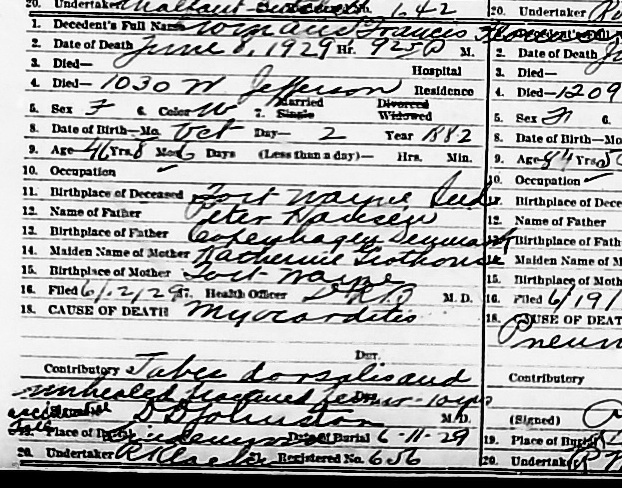 20. Undertaker 142
20. Undertaker
1. Decedent's Full Name Francis
2. Date of Death June 8, 1929 Hr. 925 P M.
3. Died— Hospital
4. Died— 1030 W Jefferson Residence
5. Sex F 6. Color W 7. Married Single Divorced Widowed
8. Date of Birth—Mo. Oct Day— 2 Year 1882
9. Age— 46 Yrs. 8 Mos. 6 Days (Less than a day)— Hrs. Min.
10. Occupation
11. Birthplace of Deceased Fort Wayne Ind
12. Name of Father Peter Hansen
13. Birthplace of Father Copenhagen Denmark
14. Maiden Name of Mother Katherine
15. Birthplace of Mother Fort Wayne
16. Filed 6/12/29 17. Health Officer M. D.
18. CAUSE OF DEATH Myocarditis
Dur.
Contributory Tabes dorsalis and
unhealed fractured femur - 10 yrs
accidental fall
(Signed) D D Johnston M. D.
19. Place of Burial Lindenwood Date of Burial 6-11-29
20. Undertaker R Klaehn 21. Registered No. 656
2. Date of Death
3. Died—
4. Died— 1209
5. Sex 6.
8. Date of Birth—Mo
9. Age— 84 Yrs.
10. Occupation
11. Birthplace of Dece
12. Name of Father
13. Birthplace of Fath
14. Maiden Name of M
15. Birthplace of Moth
16. Filed 6/19/
18. CAUSE OF DEATH
Pneum
Contributory
(Signed)
19. Place of Burial
20. Undertaker R